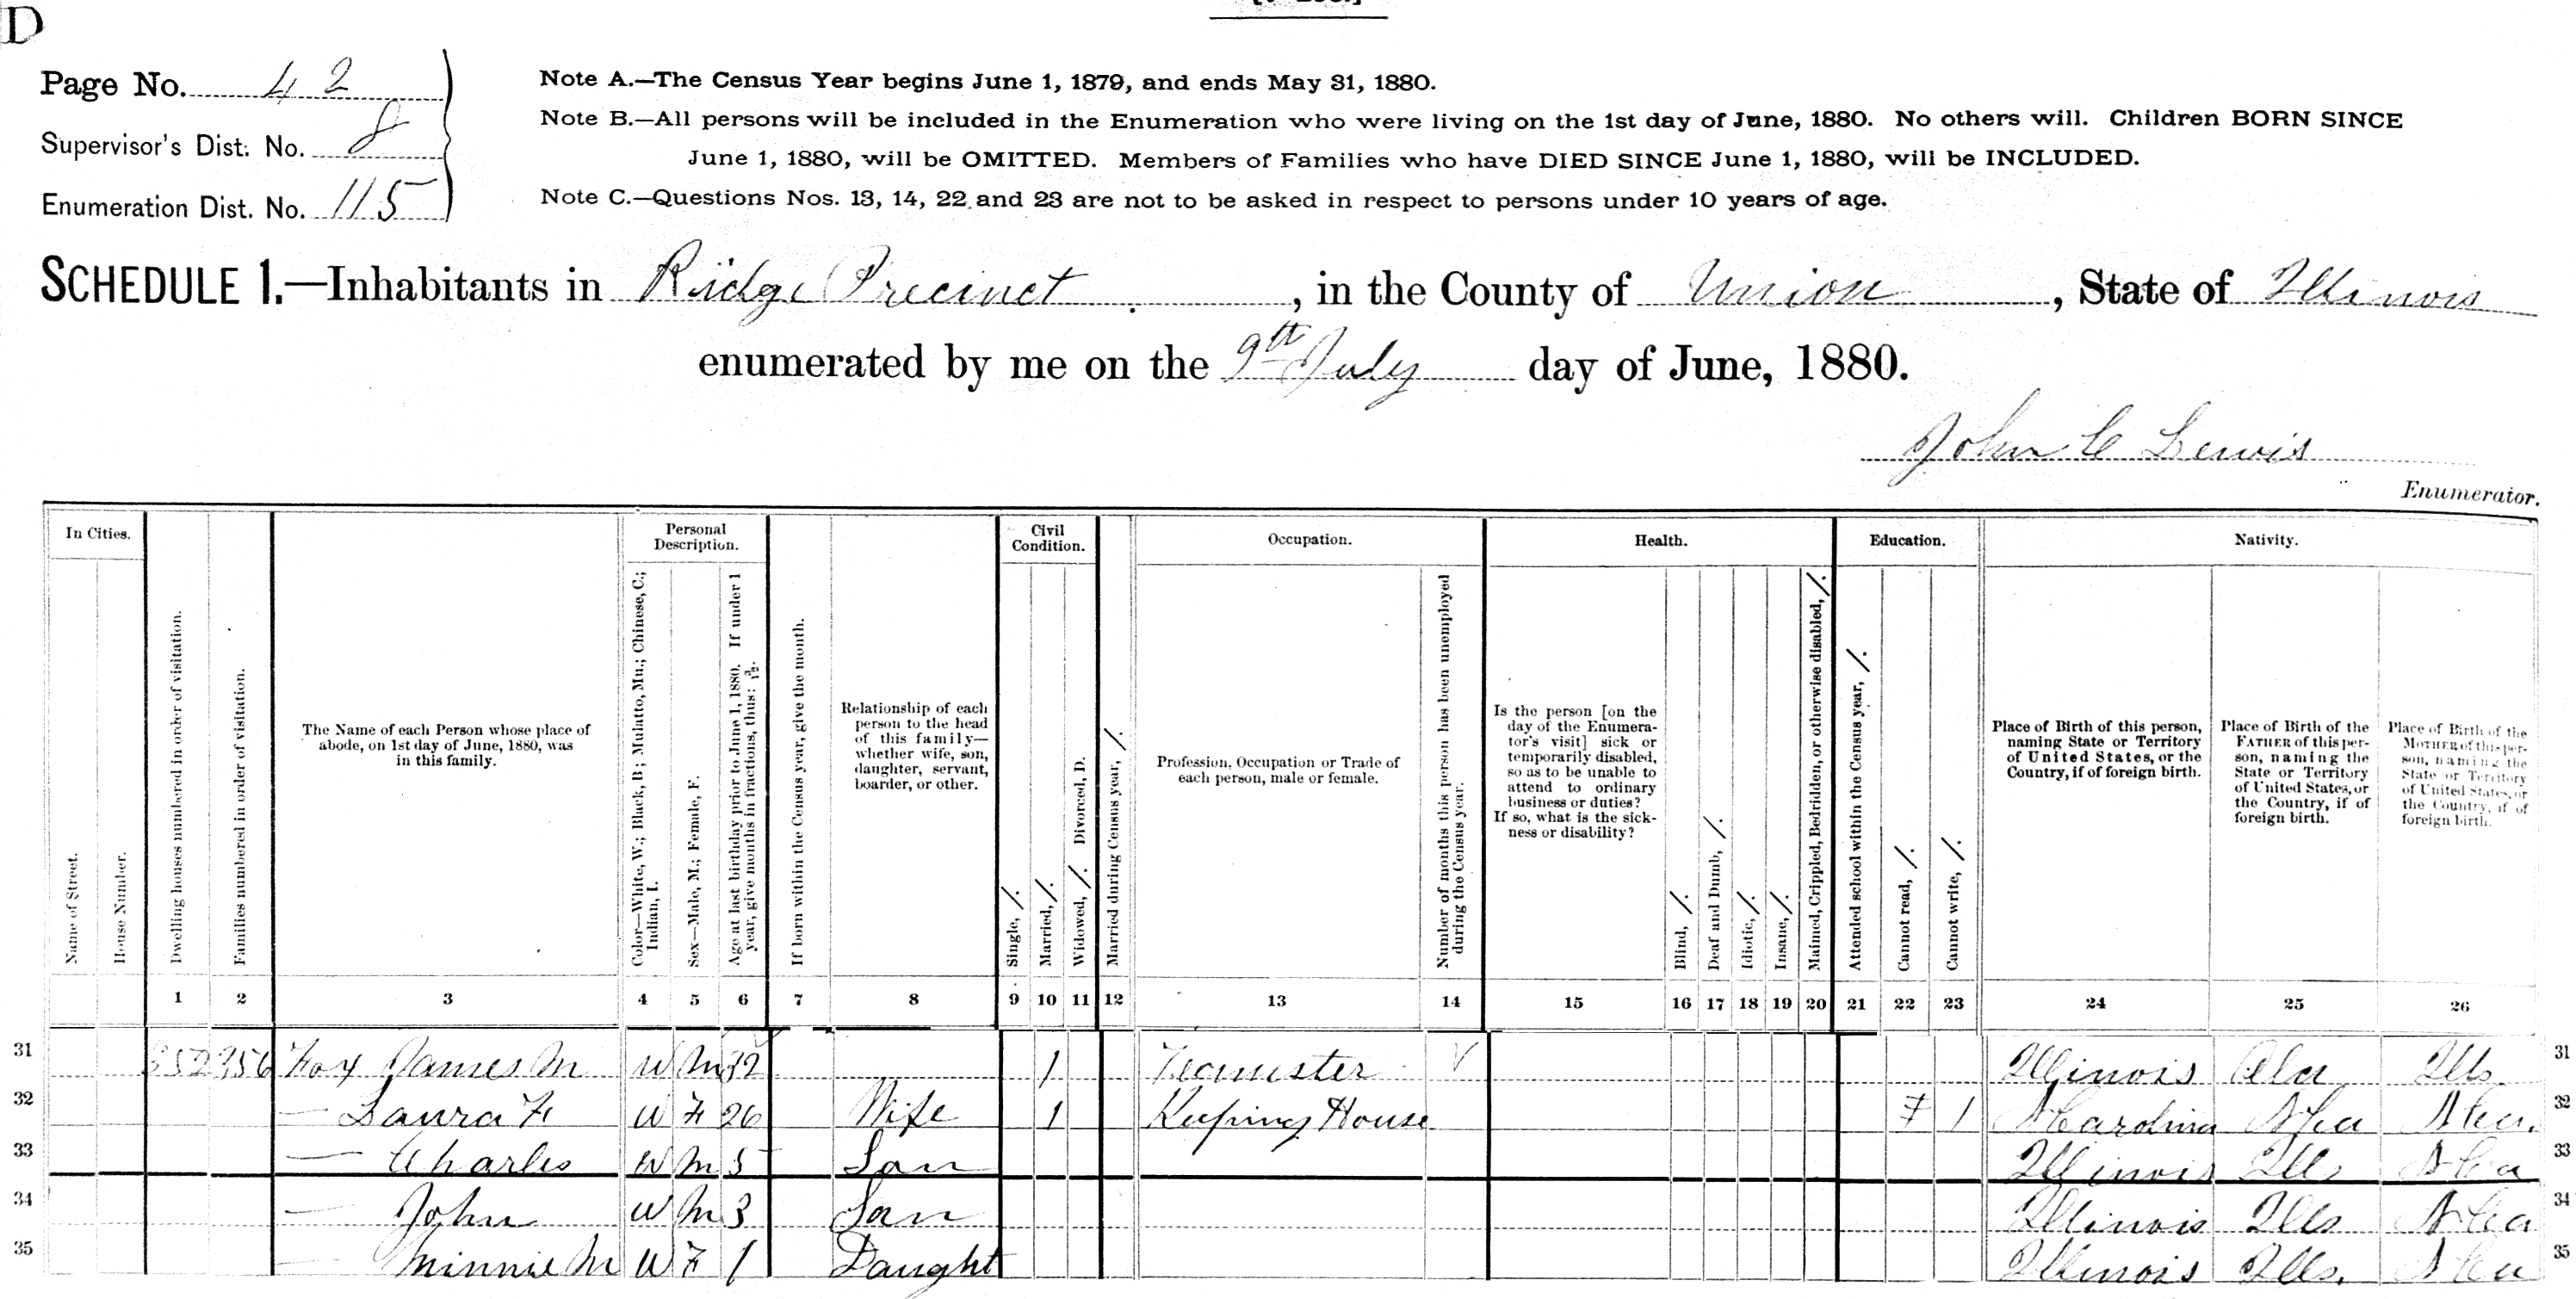 D
Page No. 42
Supervisor's Dist. No. 8
Enumeration Dist. No. 115
Note A.—The Census Year begins June 1, 1879, and ends May 31, 1880.
Note B.—All persons will be included in the Enumeration who were living on the 1st day of June, 1880. No others will. Children BORN SINCE
June 1, 1880, will be OMITTED. Members of Families who have DIED SINCE June 1, 1880, will be INCLUDED.
Note C.—Questions Nos. 13, 14, 22 and 23 are not to be asked in respect to persons under 10 years of age.
SCHEDULE 1.—Inhabitants in Ridge Precinct, in the County of Union, State of Illinois
enumerated by me on the 9th July day of June, 1880.
John C Lewis
Enumerator.
In Cities.
Name of Street.
House Number.
Dwelling houses numbered in order of visitation.
Families numbered in order of visitation.
The Name of each Person whose place of
abode, on 1st day of June, 1880, was
in this family.
Personal
Description.
Color—White, W.; Black, B.; Mulatto, Mu.; Chinese, C.;
Indian, I.
Sex—Male, M.; Female, F.
Age at last birthday prior to June 1, 1880. If under 1
year, give months in fractions, thus: 3/12.
If born within the Census year, give the month.
Relationship of each
person to the head
of this family—
whether wife, son,
daughter, servant,
boarder, or other.
Civil
Condition.
Single, /.
Married, /.
Widowed, /. Divorced, D.
Married during Census year, /.
Occupation.
Profession, Occupation or Trade of
each person, male or female.
Number of months this person has been unemployed
during the Census year.
Health.
Is the person [on the
day of the Enumera-
tor's visit] sick or
temporarily disabled,
so as to be unable to
attend to ordinary
business or duties?
If so, what is the sick-
ness or disability?
Blind, /.
Deaf and Dumb, /.
Idiotic, /.
Insane, /.
Maimed, Crippled, Bedridden, or otherwise disabled, /.
Education.
Attended school within the Census year, /.
Cannot read, /.
Cannot write, /.
Nativity.
Place of Birth of this person,
naming State or Territory
of United States, or the
Country, if of foreign birth.
Place of Birth of the
FATHER of this per-
son, naming the
State or Territory
of United States, or
the Country, if of
foreign birth.
Place of Birth of the
MOTHER of this per-
son, naming the
State or Territory
of United States, or
the Country, if of
foreign birth.
1 2 3 4 5 6 7 8 9 10 11 12 13 14 15 16 17 18 19 20 21 22 23 24 25 26
31 352 356 Fox James M W M 32 1 Teamster Illinois Ala Ills 31
32 — Laura F W F 26 Wife 1 Keeping House 1 N Carolina N Ca N Ca. 32
33 — Charles W M 5 Son Illinois Ills N Ca 33
34 — John W M 3 Son Illinois Ills N Ca 34
35 — Minnie M W F 1 Daught Illinois Ills. N Ca 35